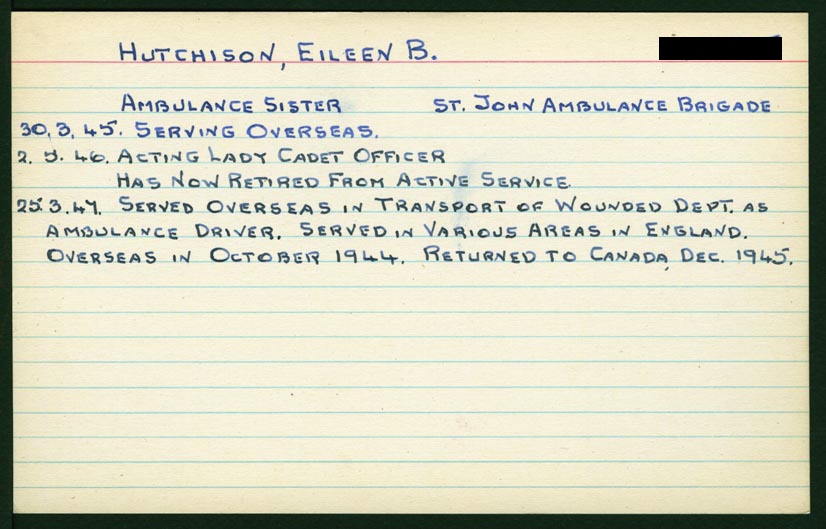 HUTCHISON, EILEEN B.
AMBULANCE SISTER ST. JOHN AMBULANCE BRIGADE
30. 3. 45. SERVING OVERSEAS.
2. 5. 46. ACTING LADY CADET OFFICER
HAS NOW RETIRED FROM ACTIVE SERVICE.
25.3.47. SERVED OVERSEAS IN TRANSPORT OF WOUNDED DEPT. AS
AMBULANCE DRIVER. SERVED IN VARIOUS AREAS IN ENGLAND.
OVERSEAS IN OCTOBER 1944. RETURNED TO CANADA, DEC. 1945.